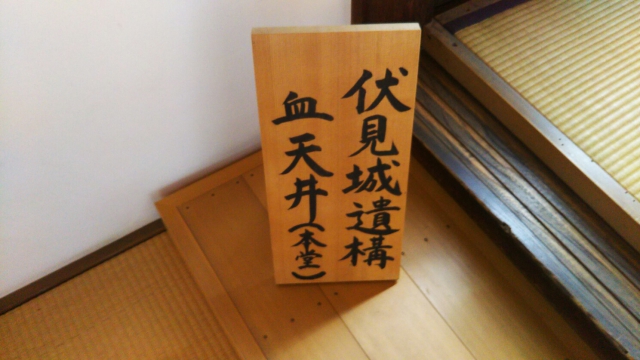 伏見城遺構
血天井(本堂)